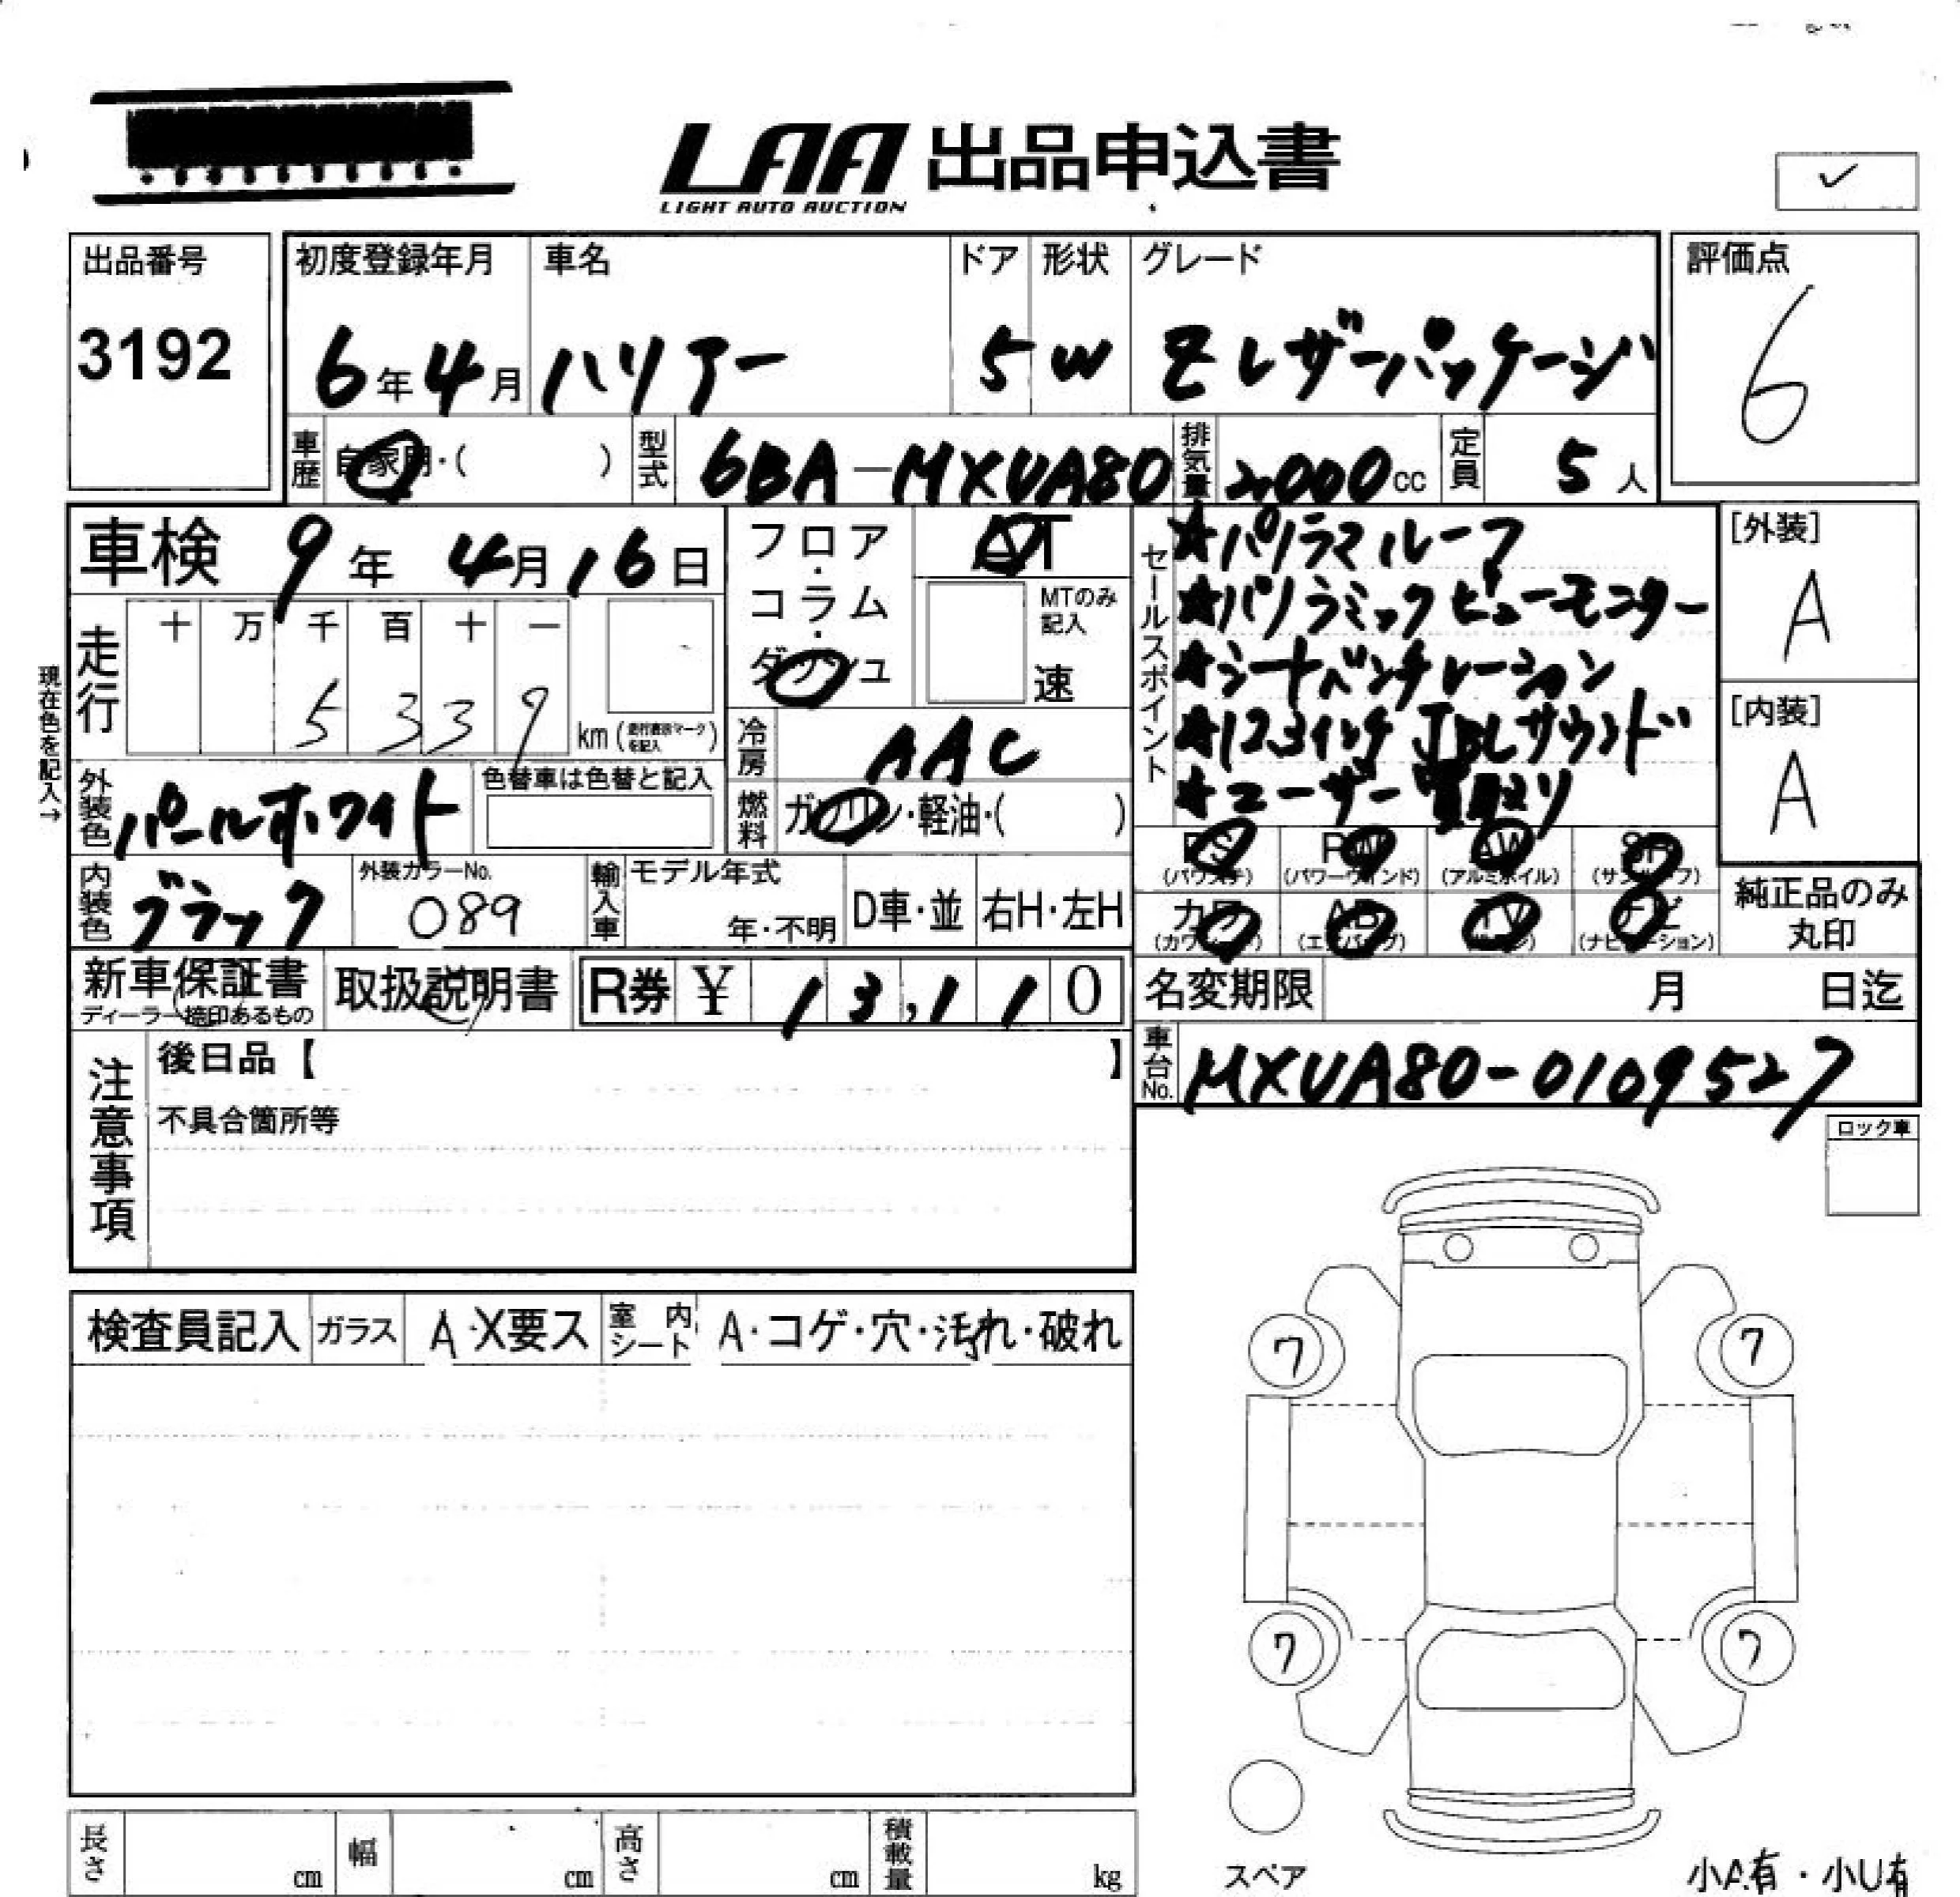 LAA 出品申込書
LIGHT AUTO AUCTION
✓
出品番号
3192
初度登録年月
6年4月
車名
ハリアー
ドア
5
形状
W
グレード
Z レザーパッケージ
評価点
6
車歴
自家用・( )
型式
6BA-MXUA80
排気量
2,000cc
定員
5人
車検 9年 4月16日
走行
十 万 千 百 十 一
5 3 3 9
km (
を記入 )
現在色を記入→
フロア
・
コラム
・
ダッシュ
AT
MTのみ
記入
速
冷房
AAC
燃料
ガソリン・軽油・( )
セールスポイント
★パノラマルーフ
★パノラミックビューモニター
★シートベンチレーション
★12.3インチ JBLサウンド
★ユーザー買取り
[外装]
A
[内装]
A
外装色
パールホワイト
色替車は色替と記入
内装色
ブラック
外装カラーNo.
089
輸入車
モデル年式
年・不明
D車・並
右H・左H
PS
(パワステ)
PW
(パワーウインド)
AW
(アルミホイル)
SR
(サンルーフ)
カワ
AB
(エアバッグ)
TV
ナビ
(ナビゲーション)
純正品のみ
丸印
新車保証書
ディーラー捺印あるもの
取扱説明書
R券 ¥ 13,110
名変期限 月 日迄
車台No.
MXUA80-0109527
注意事項
後日品【 】
不具合箇所等
ロック車
検査員記入
ガラス
A・X要ス
室内シート
A・コゲ・穴・汚れ・破れ
ワ
ワ
ワ
ワ
スペア
長さ cm
幅 cm
高さ cm
積載量 kg
小A有・小U有